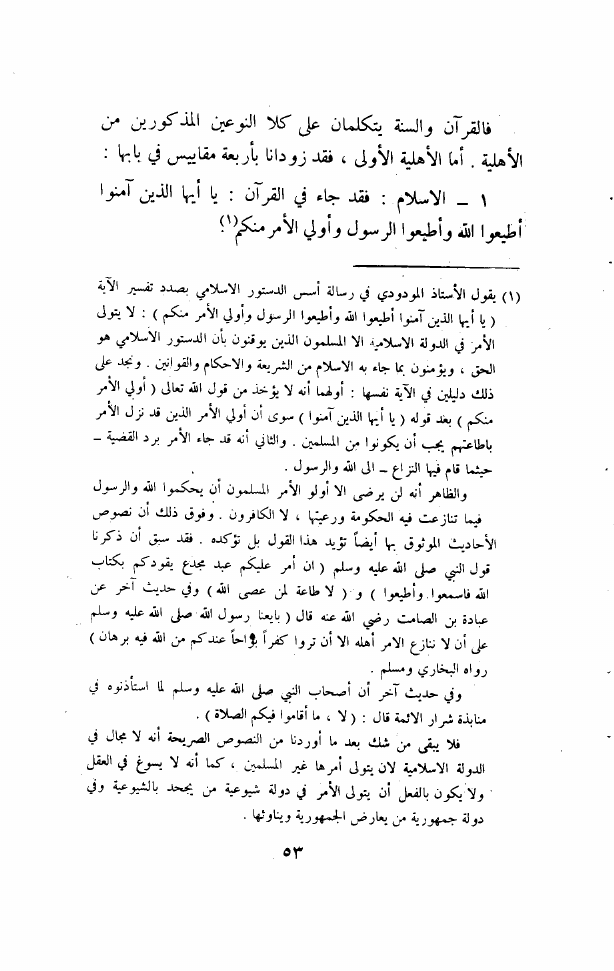 فالقرآن والسنة يتكلمان على كلا النوعين المذكورين من
الأهلية . أما الأهلية الأولى ، فقد زودانا بأربعة مقاييس في بابها :
١ – الاسلام : فقد جاء في القرآن : يا أيها الذين آمنوا
أطيعوا الله وأطيعوا الرسول وأولي الأمر منكم(١)؟
(١) يقول الأستاذ المودودي في رسالة أسس الدستور الاسلامي بصدد تفسير الآية
( يا أيها الذين آمنوا أطيعوا الله وأطيعوا الرسول وأولي الأمر منكم ) : لا يتولى
الأمر في الدولة الاسلامية الا المسلمون الذين يوقنون بأن الدستور الاسلامي هو
الحق ، ويؤمنون بما جاء به الاسلام من الشريعة والاحكام والقوانين . ونجد على
ذلك دليلين في الآية نفسها : أولهما أنه لا يؤخذ من قول الله تعالى ( أولي الأمر
منكم ) بعد قوله ( يا أيها الذين آمنوا ) سوى أن أولي الأمر الذين قد نزل الأمر
باطاعتهم يجب أن يكونوا من المسلمين . والثاني أنه قد جاء الأمر برد القضية –
حيثما قام فيها النزاع – الى الله والرسول .
والظاهر أنه لن يرضى الا أولو الأمر المسلمون أن يحكموا الله والرسول
فيما تنازعت فيه الحكومة ورعيتها ، لا الكافرون . وفوق ذلك أن نصوص
الأحاديث الموثوق بها أيضاً تؤيد هذا القول بل تؤكده . فقد سبق أن ذكرنا
قول النبي صلى الله عليه وسلم ( ان أمر عليكم عبد مجدع يقودكم بكتاب
الله فاسمعوا وأطيعوا ) و ( لا طاعة لمن عصى الله ) وفي حديث آخر عن
عبادة بن الصامت رضي الله عنه قال ( بايعنا رسول الله صلى الله عليه وسلم
على أن لا ننازع الامر أهله الا أن تروا كفراً بواحاً عندكم من الله فيه برهان )
رواه البخاري ومسلم .
وفي حديث آخر أن أصحاب النبي صلى الله عليه وسلم لما استأذنوه في
منابذة شرار الائمة قال : ( لا ، ما أقاموا فيكم الصلاة ) .
فلا يبقى من شك بعد ما أوردنا من النصوص الصريحة أنه لا مجال في
الدولة الاسلامية لان يتولى أمرها غير المسلمين ، كما أنه لا يسوغ في العقل
ولا يكون بالفعل أن يتولى الأمر في دولة شيوعية من يجحد بالشيوعية وفي
دولة جمهورية من يعارض الجمهورية ويناوئها .
٥٣